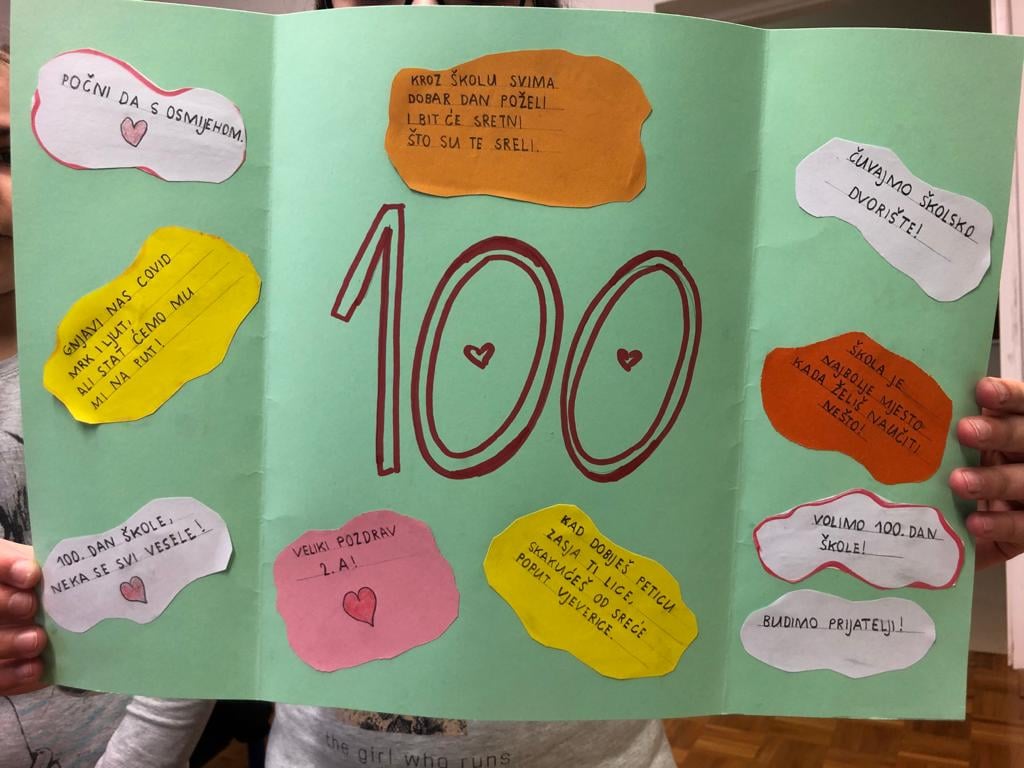 POČNI DA S OSMIJEHOM.
KROZ ŠKOLU SVIMA
DOBAR DAN POŽELI
I BIT ĆE SRETNI
ŠTO SU TE SRELI.
ČUVAJMO ŠKOLSKO
DVORIŠTE!
GNJAVI NAS COVID
MRK I LJUT,
ALI STAT ĆEMO MU
MI NA PUT!
100
ŠKOLA JE
NAJBOLJE MJESTO
KADA ŽELIŠ NAUČITI
NEŠTO!
100. DAN ŠKOLE,
NEKA SE SVI VESELE!
VELIKI POZDRAV
2. A!
KAD DOBIJEŠ PETICU
ZASJA TI LICE,
SKAKUĆEŠ OD SREĆE
POPUT VJEVERICE.
VOLIMO 100. DAN
ŠKOLE!
BUDIMO PRIJATELJI!
the girl who runs